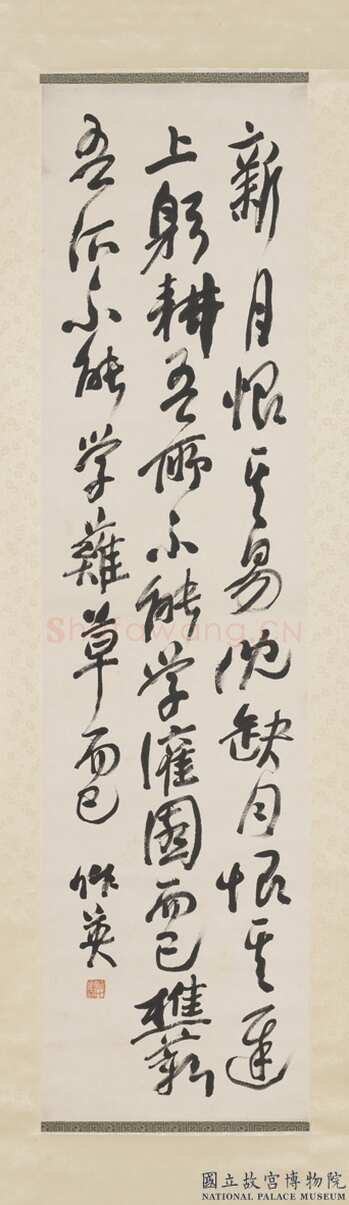 新月恨其易沈缺月恨其遲
上躬耕吾所不能学灌園而已樵薪
吾所不能学薙草而已 英
Shufawang.CN
國立故宮博物院
NATIONAL PALACE MUSEUM